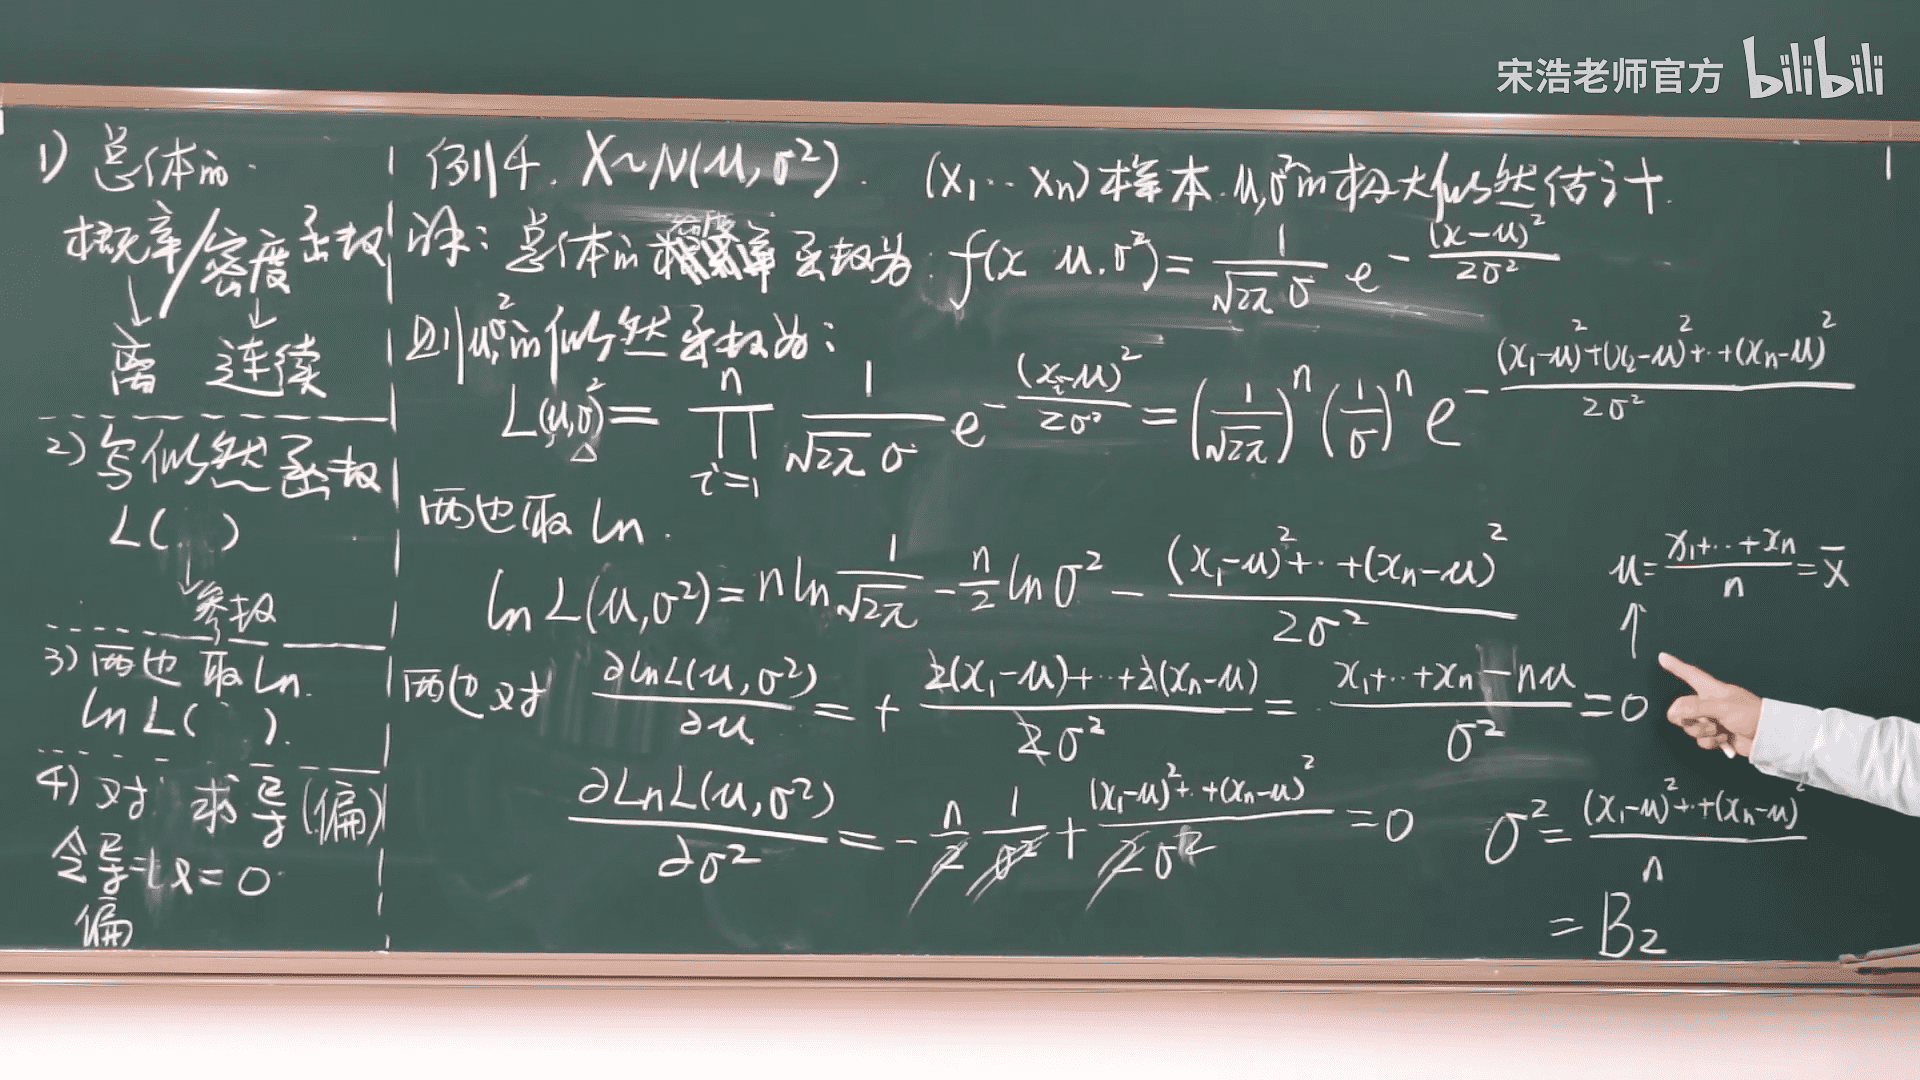 宋浩老师官方 bilibili
1) 总体的
概率/密度函数
↓ ↓
离 连续
2) 写似然函数
L( )
↓参数
3) 两边取ln.
ln L( ).
4) 对 求导(偏)
令导= =0
偏
例4. X~N(μ,σ²). (x₁…xₙ)样本.μ,σ²的极大似然估计.
解:总体的密度函数为:f(x μ,σ²)=1/(√2π σ) e^(-(x-μ)²/2σ²)
则μ,σ²的似然函数为:
L(μ,σ²)=∏_{i=1}^{n} 1/(√2π σ) e^(-(xᵢ-μ)²/2σ²)=(1/√2π)ⁿ(1/σ)ⁿ e^(-((x₁-μ)²+(x₂-μ)²+…+(xₙ-μ)²)/2σ²)
△
两边取ln.
ln L(μ,σ²)=n ln 1/√2π - n/2 ln σ² - ((x₁-μ)²+…+(xₙ-μ)²)/2σ²
两边对 ∂lnL(μ,σ²)/∂μ=+(2(x₁-μ)+…+2(xₙ-μ))/2σ²=(x₁+…+xₙ-nμ)/σ²=0
↑
μ=(x₁+…+xₙ)/n=x̄
∂LnL(μ,σ²)/∂σ²=-n/2 1/σ²+((x₁-μ)²+…+(xₙ-μ)²)/2σ²=0
σ²=((x₁-μ)²+…+(xₙ-μ)²)/n
=B₂